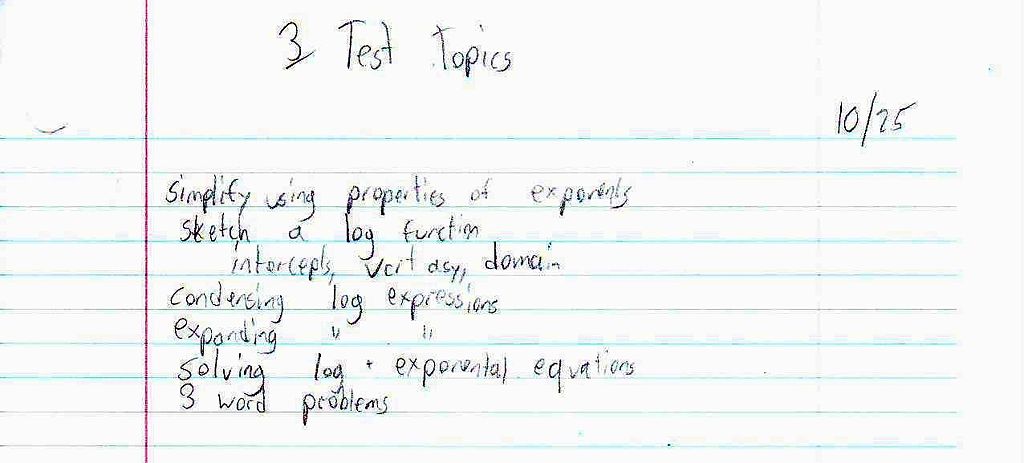 3 Test Topics
10/25
simplify using properties of exponents
sketch a log function
intercepts, vert asy, domain
condensing log expressions
expanding " "
solving log + exponental equations
3 word problems